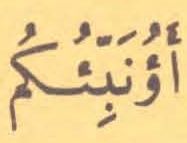 أَؤُنَبِّئُكُمْ